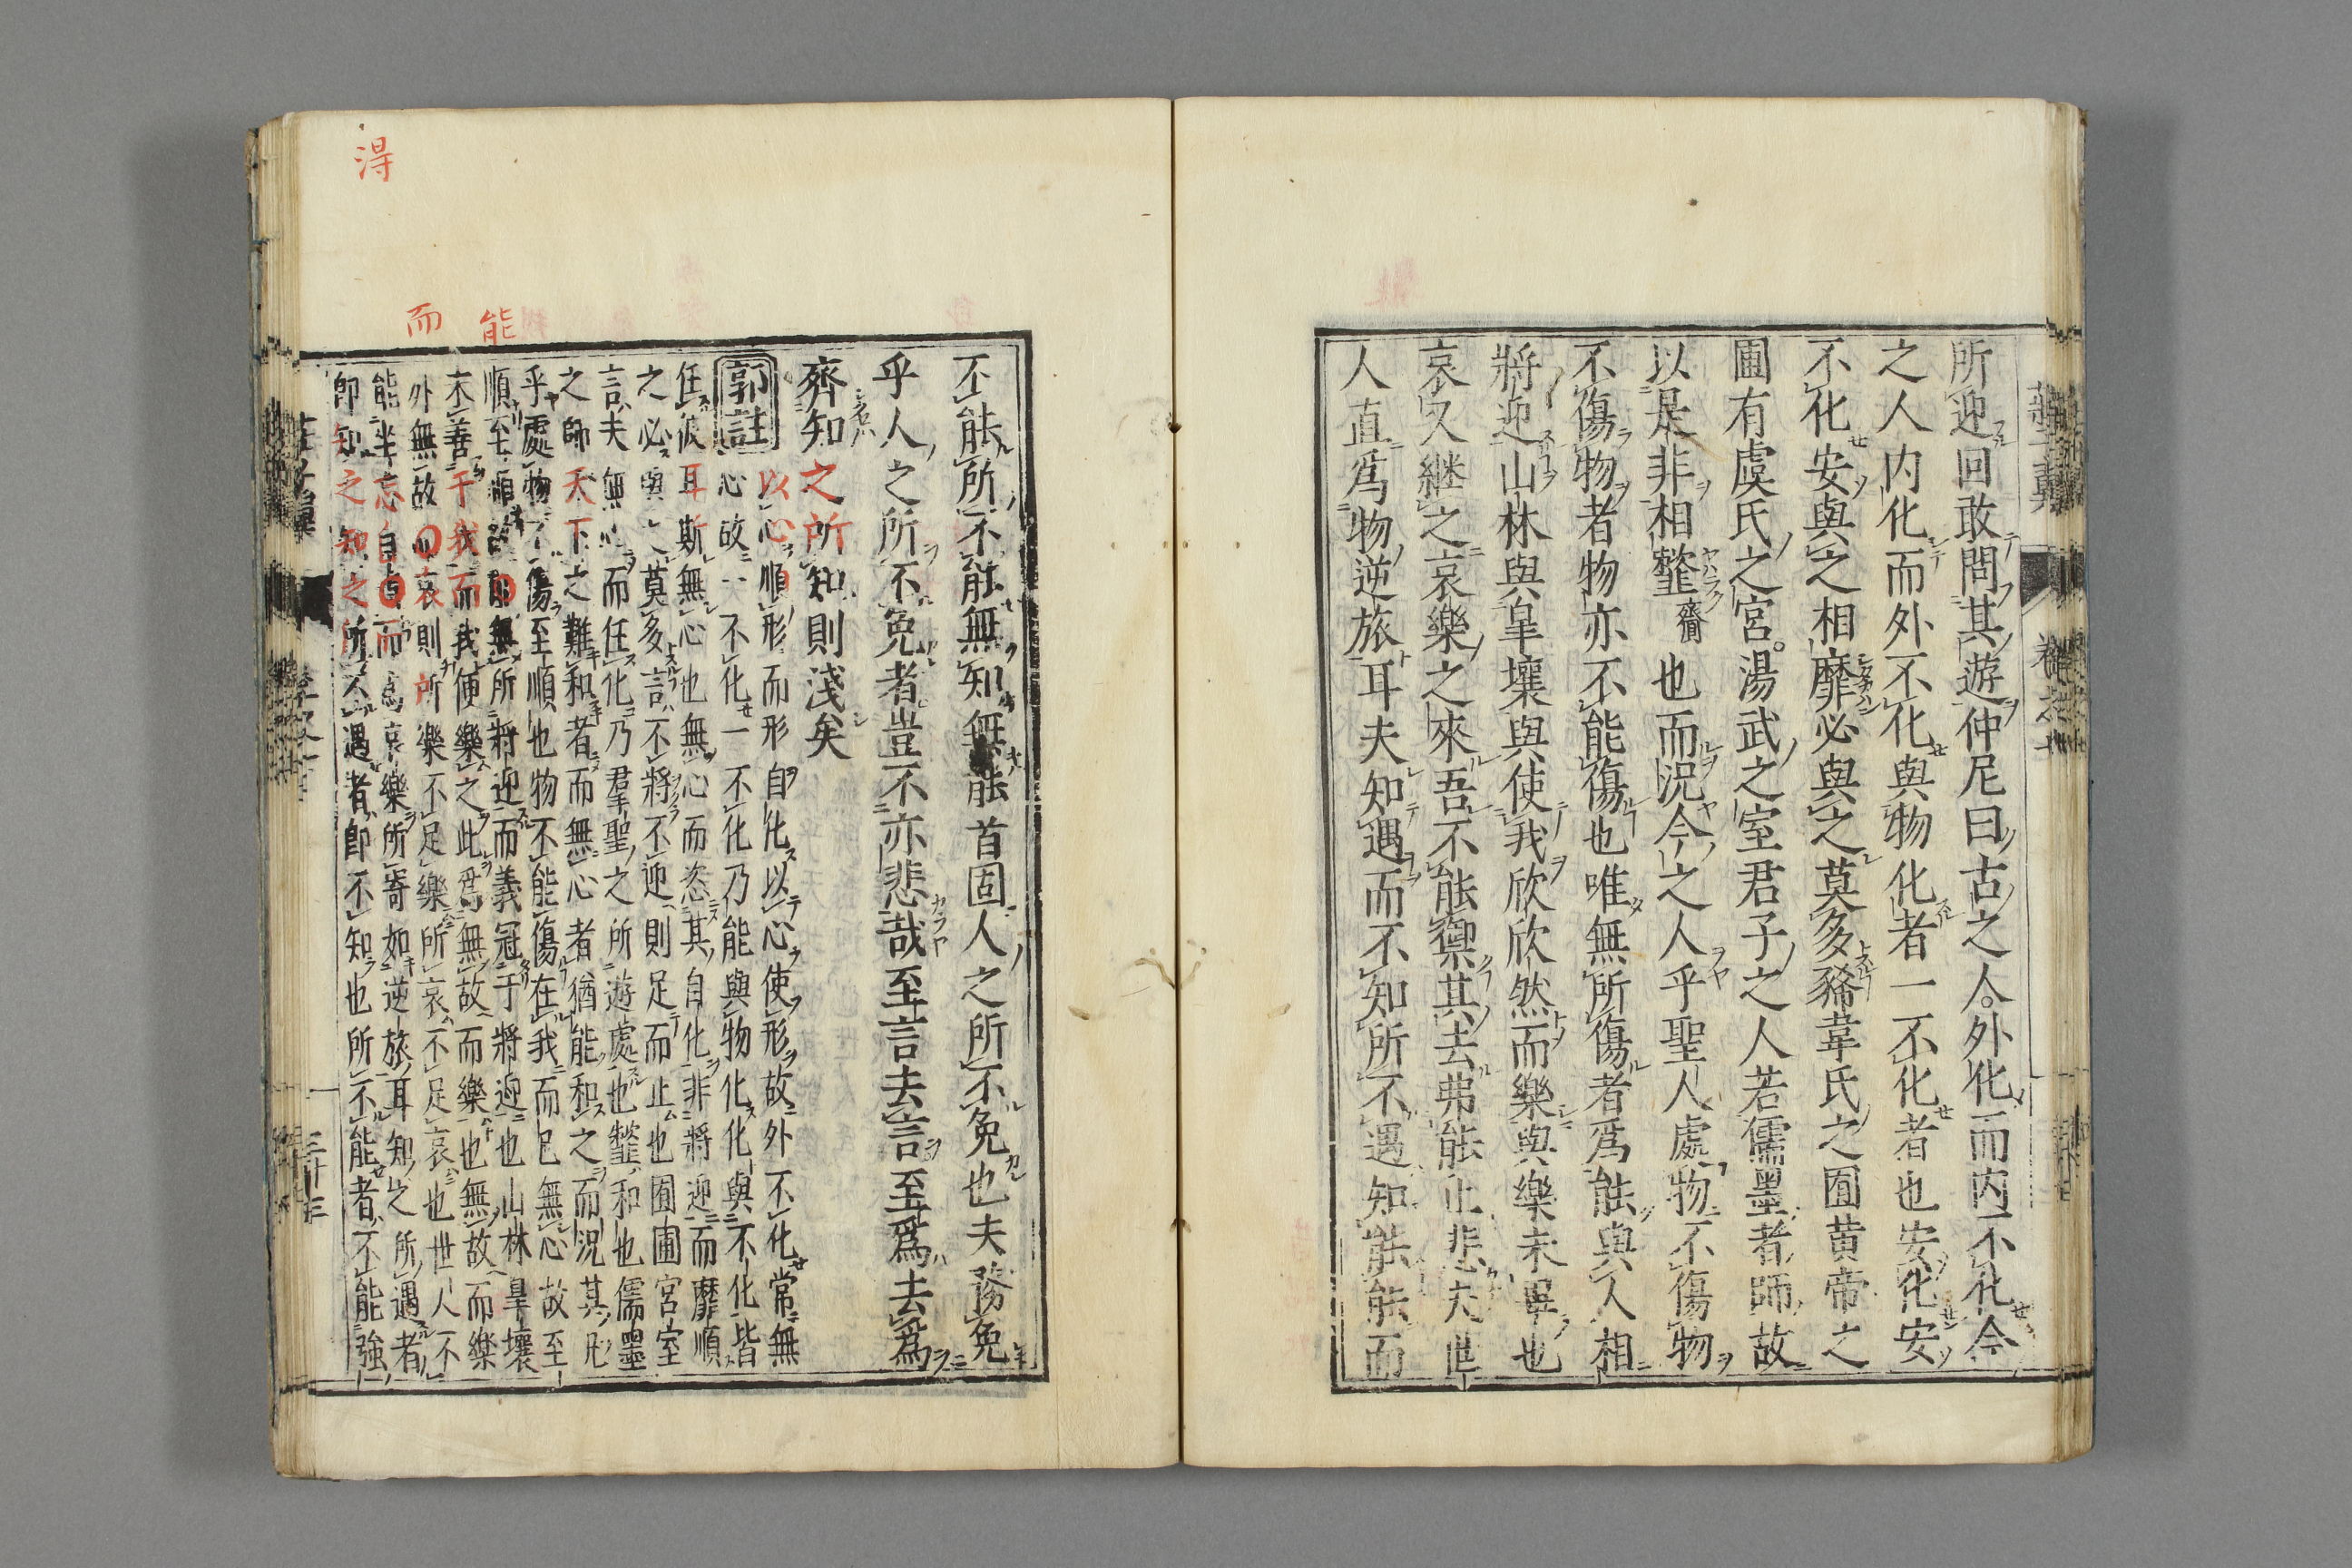 所迎回敢問其遊仲尼曰古之人外化而内不化今
之人内化而外不化與物化者一不化者也安化安
不化安與之相靡必與之莫多豨韋氏之囿黄帝之
圃有虞氏之宮湯武之室君子之人若儒墨者師故
以是非相䪡齎也而況今之人乎聖人處物不傷物
不傷物者物亦不能傷也唯無所傷者爲能與人相
將迎山林與皐壤與使我欣欣然而樂與樂未畢也
哀又継之哀樂之來吾不能禦其去弗能止悲夫世
人直爲物逆旅耳夫知遇而不知所不遇知能能而
不能所不能無知無能者固人之所不免也夫務免
乎人之所不免者豈不亦悲哉至言去言至爲去爲
齊知之所知則淺矣
郭註
以心順形而形自化以心使形故外不化常無
心故一不化一不化乃能與物化化與不化皆
任彼耳斯無心也無心而恣其自化非將迎而靡順
之必與之莫多言不將不迎則足而止也囿圃宮室
言夫無心而任化乃群聖之所遊處也䪡和也儒墨
之師天下之難和者而無心者猶能和之而況其凡
乎處物不傷至順也物不能傷在我而已無心故至
順至順故能無所將迎而義冠于將迎也山林皐壤
未善于我而我便樂之此爲無故而樂也無故而樂
外無故而哀則所樂不足樂所哀不足哀也世人不
能坐忘自得而爲哀樂所寄如逆旅耳知之所遇者
卽知之知之所不遇者卽不知也所不能者不能強
得
而
能
三十三